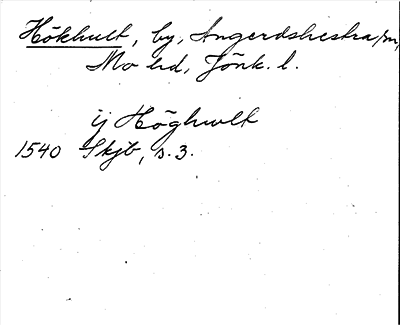 Hökhult, by, Angerdshestra sn,
Mo hd, Jönk. l.
ij Höghwlt
1540 Skjb, s. 3.